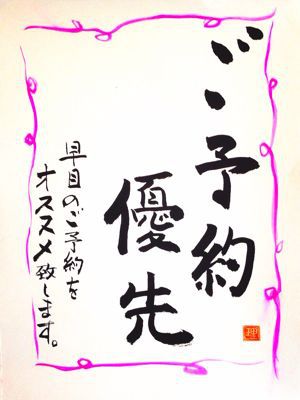 ご予約
優先
早目のご予約を
オススメ致します。
理